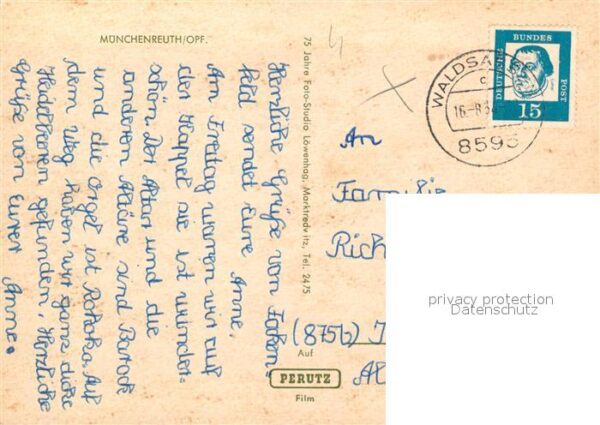 MÜNCHENREUTH/OPF.
Herzliche Grüße vom Falken-
feld sendet Eure Anne.
Am Freitag waren wir auf
der Kappel sie ist wunder-
schön. Der Altar und die
anderen Altäre sind Barock
und die Orgel ist Rokoko. Auf
dem Weg haben wir ganz dicke
Heidelbeeren gefunden. Herzliche
Grüße von Eurer
Anne.
75 Jahre Foto-Studio Löwenhag, Marktredwitz, Tel. 2475
Auf
PERUTZ
Film
DEUTSCHE
BUNDES
POST
15
WALDSA
c
16.-8.
8595
An
Familie
Rich
(8751)
privacy protection
Datenschutz